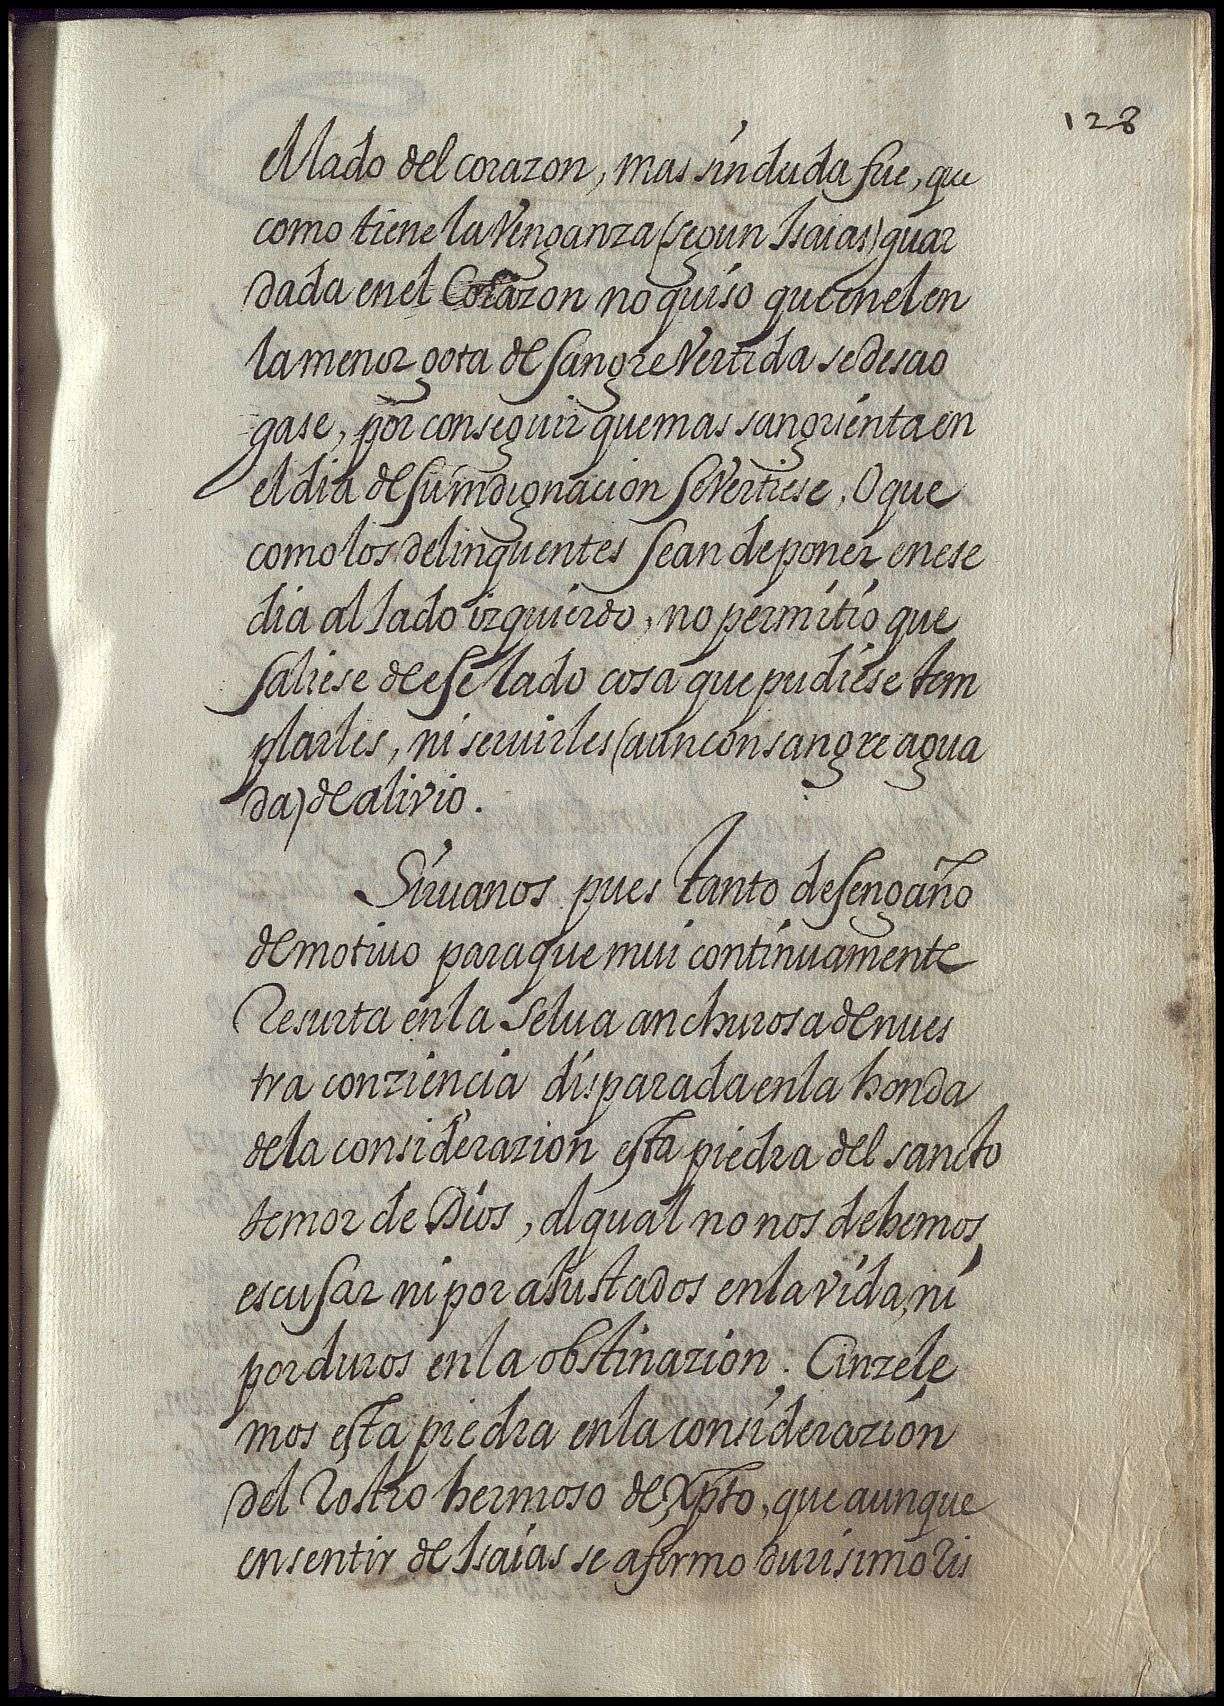 128
el lado del corazon, mas sin duda fue, que
como tiene la Venganza (segun Isaias) guar
dada en el Corazon no quiso que en el en
la menor gota de sangre Vertida se desao
gase, por conseguir que mas sangrienta en
el dia de su indignacion se Vertiese. O que
como los delinquentes se an de poner en ese
dia al lado izquierdo, no permitio que
saliese de ese lado cosa que pudiese tem
plarles, ni seruirles (aun con sangre agua
da) de alivio.
Siruanos pues tanto desengaño
de motiuo para que mui continuamente
Resurta en la selua anchurosa de nues
tra conziencia disparada en la honda
de la considerazion esta piedra del sancto
temor de Dios, al qual no nos debemos
escusar ni por aiustados en la vida, ni
por duros en la obstinazion. Cinzele
mos esta piedra en la considerazion
del Rostro hermoso de Xpto, que aunque
en sentir de Isaias se afirmo durisimo Ris